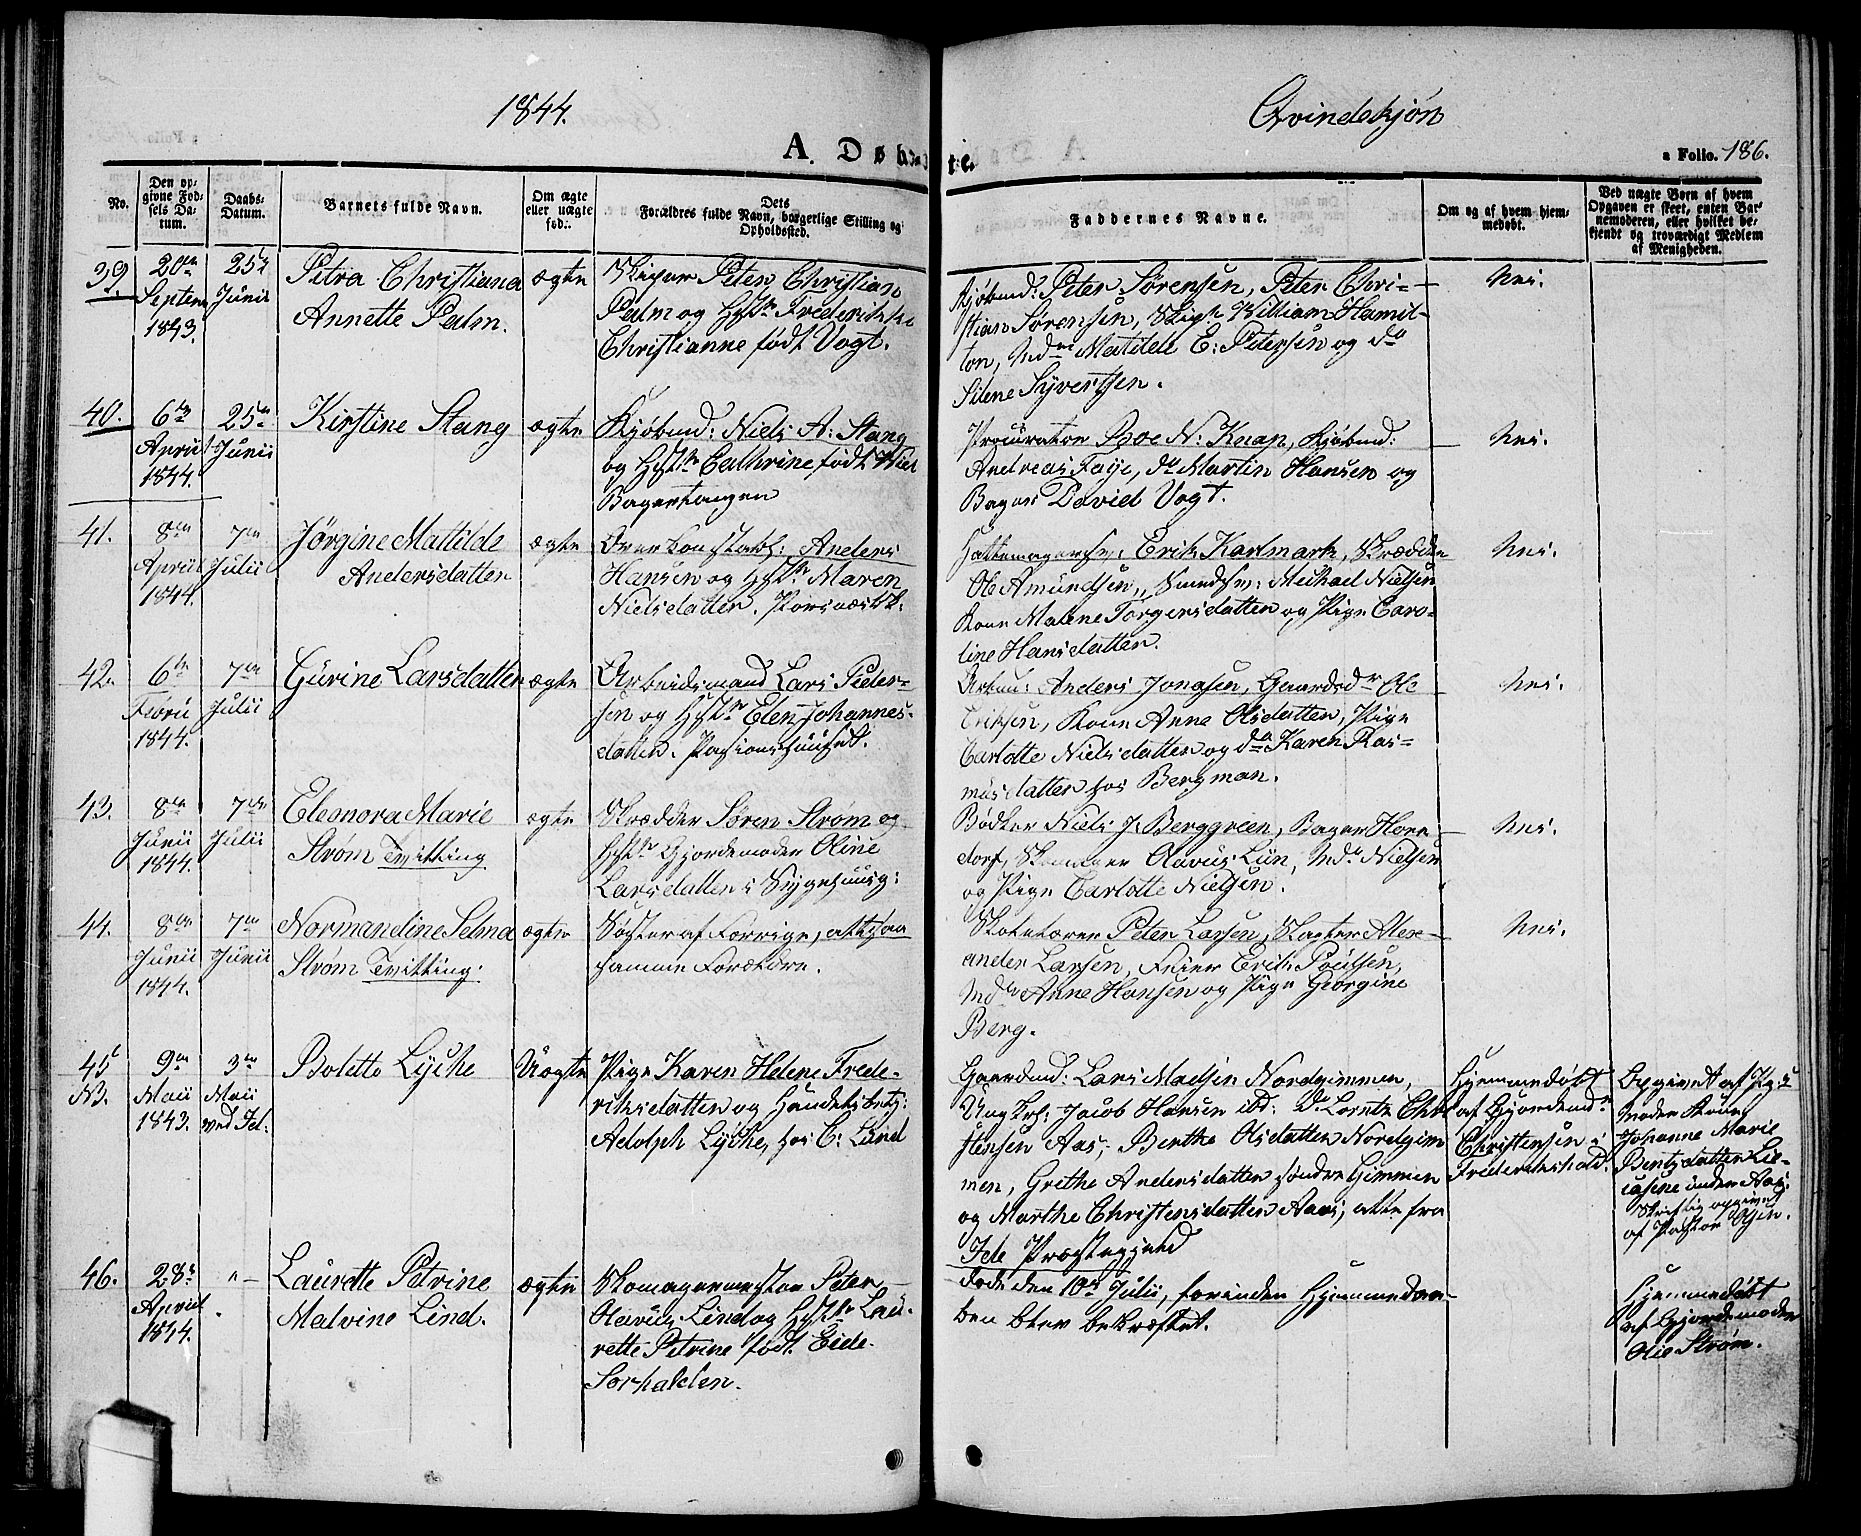 1844.
Qvindekjøn
A. Døbte.
a Folio. 186.
No.
Den op-
givne Fød-
sels Da-
tum.
Daabs-
Datum.
Barnets fulde Navn.
Om ægte
eller uægte
fød.
Dets
Forældres fulde Navn, borgerlige Stilling og
Opholdssted.
Faddernes Navne.
Om og af hvem hjem-
medøbt.
Ved uægte Børn af hvem
Opgaven er skeet, enten Bar-
nemoderen, eller hvilket be-
kjendt og troværdigt Medlem
af Menigheden.
39.
20de
Septem
1843.
25de
Junii
Petra Christiana
Annette Palm.
ægte
Skipper Peter Christian
Palm og Hst. Frederikke
Christianne født Vogt.
Kjøbmd: Peter Sørensen, Peter Chri-
stian Sørensen, Skip. William Hamil-
ton, Md. Matilde E: Petersen og do
Siline Syvertsen.
Nei.
40.
6te
April
1844.
25de
Junii
Kirstine Stang
ægte
Kjøbmd: Niels A: Stang
og Hst. Cathrine født Wiel
Bagertangen
Procurator Boe N: Knap, Kjøbmd:
Andreas Faye, do Martin Hansen og
Bager David Vogt.
Nei.
41.
8de
April
1844.
7de
Julii
Jørgine Mattilde
Andersdatter
ægte
Overkonstabl: Anders
Hansen og Hst. Maren
Nielsdatter.
Hattemagersv: Erik Karlmark, Skrædder
Ole Amundsen, Smedsv: Michael Nielsen
Kone Malene Torgersdatter og Pige Caro-
line Hansdatter.
Nei.
42.
6te
Febru
1844.
7de
Julii
Gurine Larsdatter
ægte
Arbeidsmand Lars Peder-
sen og Hst. Elen Johannes-
datter.
Arbm: Anders Jonasen, Gaardsdr Ole
Eriksen, Kone Anne Olsdatter, Pige
Carlotte Nielsdatter og do Karen Ras-
musdatter hos Bergman.
Nei.
43.
8de
Junii
1844.
7de
Julii
Eleonora Marie
Strøm Tvilling
ægte
Skrædder Søren Strøm og
Hst. Gjordemoder Oline
Larsdatter i Sygehuusg:
Bødker Niels J: Berggreen, Bager Horn-
dorf, Skomager Olavus Lun, Md. Nielsen
og Pige Carlotte Nielsen.
Nei.
44.
8de
Junii
1844.
7de
Junii
Normandine Selma
Strøm Tvilling.
ægte
Søster af Forrige, altsaa
samme Forældre.
Skolelærer Peter Larsen, Alex-
ander Larsen, Feier Erik Poulsen,
Md. Anne Hansen og Pige Georgine
Berg.
Nei.
45
N3.
9de
Maii
1843.
3de
Maii
ved Id.
Bolette Lyche
Uægte
Pige Karen Helene Frede-
riksdatter og Handelsbetj:
Adolph Lyche, hos C: Lund
Gaardmd: Lars Madsen Nordgimmen,
Ungkrl: Jacob Hansen ibd: do Lorentz Chri
stensen Aas, Berthe Olsdatter Nordgim
men, Grethe Andersdatter søndre Gimmen
og Marthe Christensdatter Aas, alle fra
Idde Præstegjeld
Hjemmedøbt
af Gjordemdr
Christensen i
Frederikshald.
Opgivet af Pigens
Moder Kone
Johanne Marie
Bentsdatter
under Aag:
Skriftlig opgivet
af Pastor
46.
28de
April
1844.
"
Laurette Petrine
Malvine Lind.
ægte
Skomagermester Peter
Olavus Lind og Hst. Lau-
rette Petrine født Eide.
Sørhalden.
døde den 10de Julii, forinden Hjemmedaa-
ben blev bekræftet.
Hjemmedøbt
af Gjordemoder
Olie Strøm.